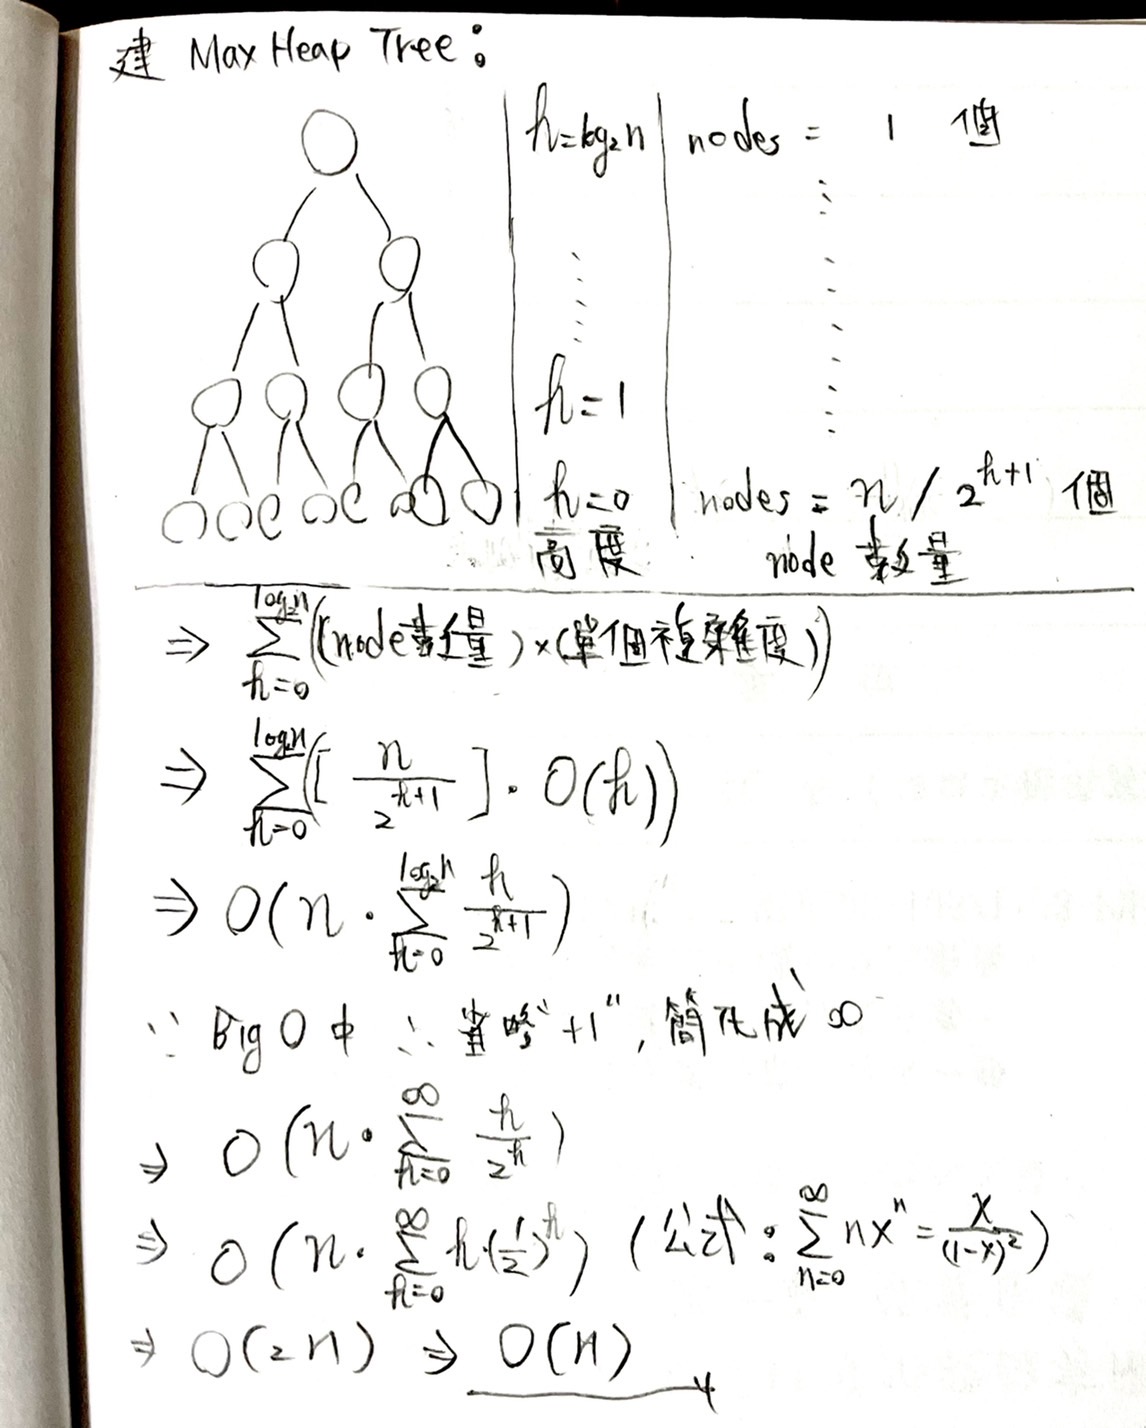 建 Max Heap Tree:
h=log₂n | nodes = 1 個
h=1
h=0 | nodes = n / 2^(h+1) 個
高度 node 數量
⇒ ∑_{h=0}^{log₂n} ((node數量)×(單個複雜度))
⇒ ∑_{h=0}^{log₂n} ([ n / 2^(h+1) ] · O(h))
⇒ O(n · ∑_{h=0}^{log₂n} h / 2^(h+1))
∵ Big O 中 ∴ 省略"+1", 簡化成 ∞
⇒ O(n · ∑_{h=0}^{∞} h / 2^h)
⇒ O(n · ∑_{h=0}^{∞} h·(1/2)^h) (公式: ∑_{n=0}^{∞} nx^n = x / (1-x)²)
⇒ O(2n) ⇒ O(n)